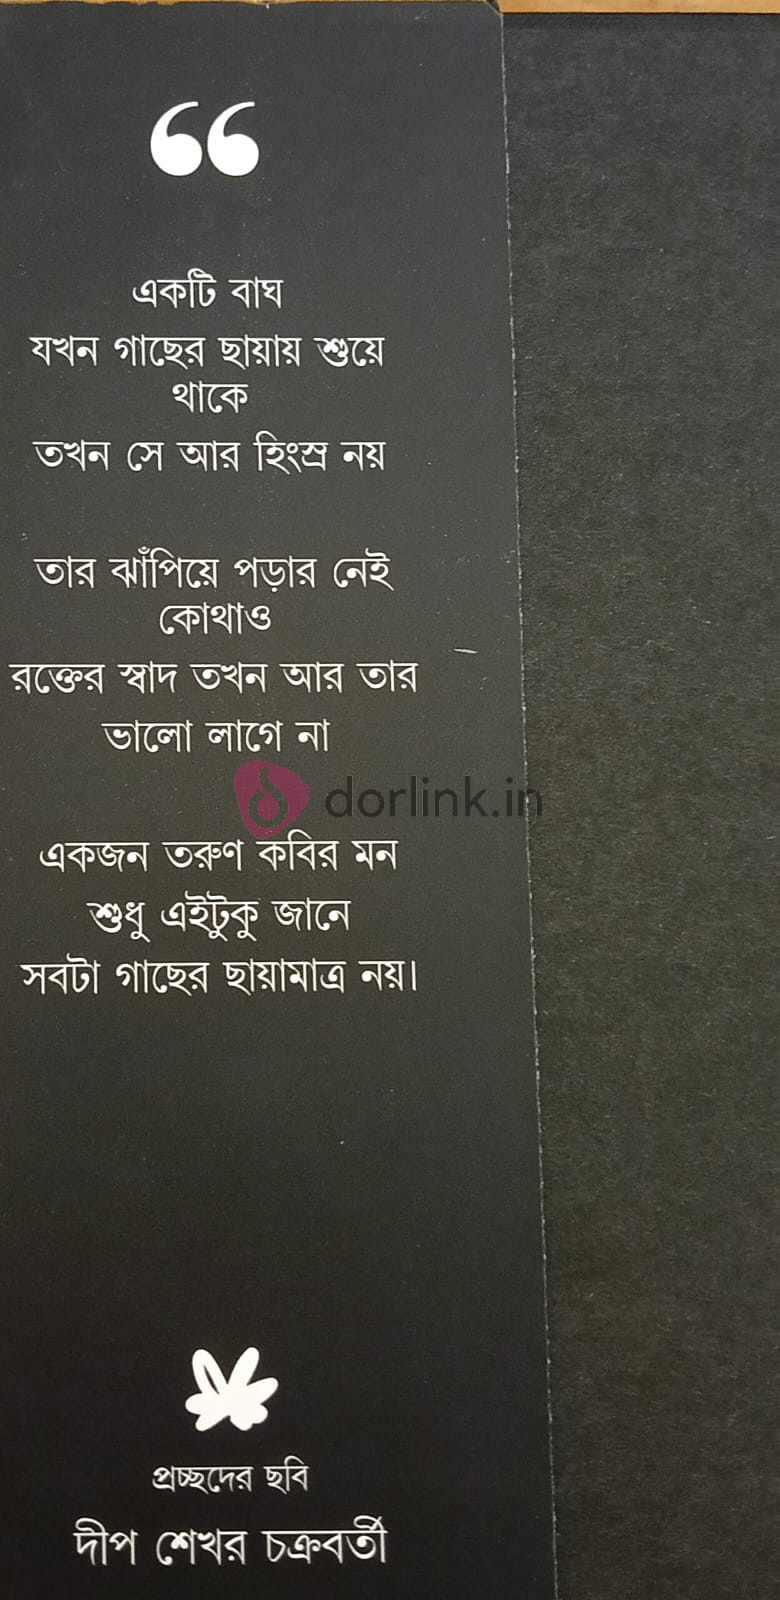 একটি বাঘ
যখন গাছের ছায়ায় শুয়ে
থাকে
তখন সে আর হিংস্র নয়
তার ঝাঁপিয়ে পড়ার নেই
কোথাও
রক্তের স্বাদ তখন আর তার
ভালো লাগে না
dorlink.in
একজন তরুণ কবির মন
শুধু এইটুকু জানে
সবটা গাছের ছায়ামাত্র নয়।
প্রচ্ছদের ছবি
দীপ শেখর চক্রবর্তী